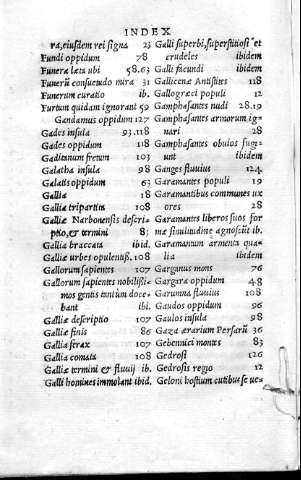 INDEX
ra, eiusdem rei signa 23
Fundi oppidum 78
Funera læta ubi 58.63
Funerũ consuetudo mira 31
Funerum curatio ib.
Furtum quidam ignorant 59
Gandamus oppidum 127
Gades insula 93.118
Gades oppidum 118
Gaditanum fretum 103
Galatha insula 98
Galatis oppidum 63
Gallia 18
Gallia tripartita 108
Galliæ Narbonensis descriptio, et termini 83
Gallia braccata ibid.
Galliæ urbes opulentiss. 108
Gallorum sapientes 107
Gallorum sapientes nobilissimos gentis entium docebant ib.
Galliæ descriptio 107
Galliæ finis 86
Gallia ferax 107
Gallia comata 108
Galliæ termini & fluuij ib.
Galli homines immolant ibid.
Galli superbi, superstitiosi et
crudeles ibidem
Galli facundi ibidem
Gallicenæ Antistites 118
Gallogræci populi 12
Gamphasantes nudi 28.19
Gamphasantes armorum ignari 28
Gamphasantes obulos fugiunt ibidem
Ganges fluuius 124
Garamantes populi 19
Garamantibus communes uxores 28
Garamantes liberos suos forme similitudine agnoscũt ib.
Garamantum armenta qualia ibidem
Garganus mons 76
Gargara oppidum 48
Garumna fluuius 108
Gaudos oppidum 96
Gaulos insula 98
Gaza ærarium Persarũ 36
Gebennici montes 83
Gedrosi 126
Gedrosis regio 12
Geloni hostium cutibus se ue-